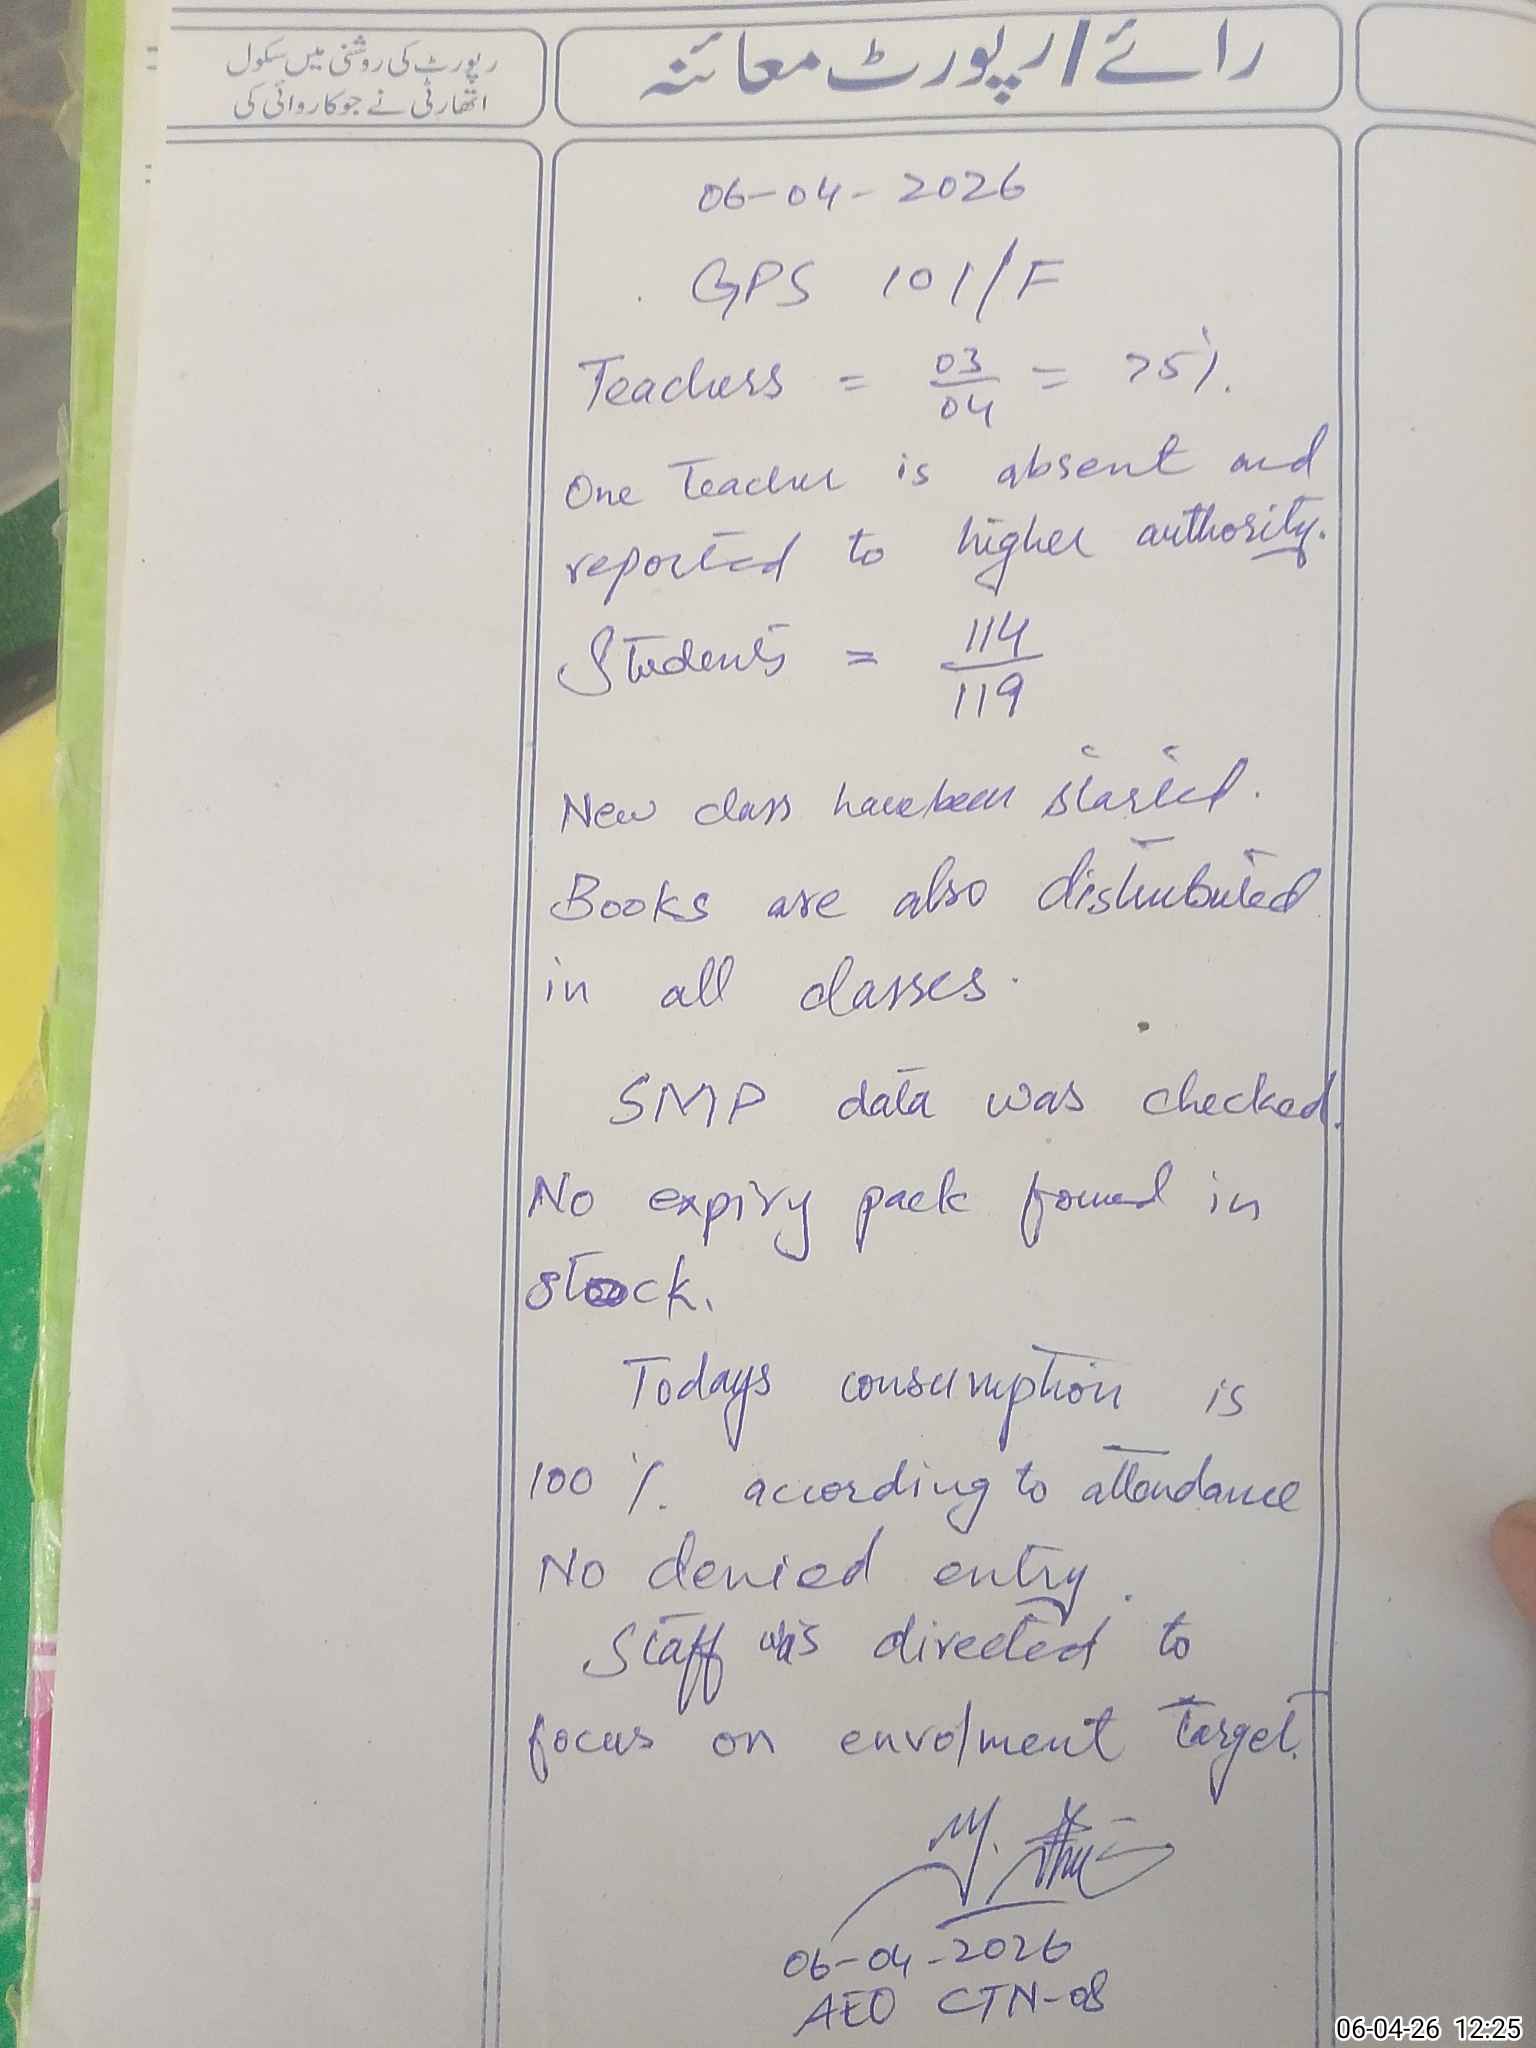 رپورٹ کی روشنی میں سکول
اتھارٹی نے جو کاروائی کی
رائے/رپورٹ معائنہ
06-04-2026
GPS 101/F
Teachers = 03/04 = 75%.
One Teacher is absent and
reported to higher authority.
Students = 114/119
New class have been started.
Books are also distributed
in all classes.
SMP data was checked.
No expiry pack found in
stock.
Todays consumption is
100 % according to attendance
No denied entry.
Staff was directed to
focus on enrolment Target.
06-04-2026
AEO CTN-08
06-04-26 12:25